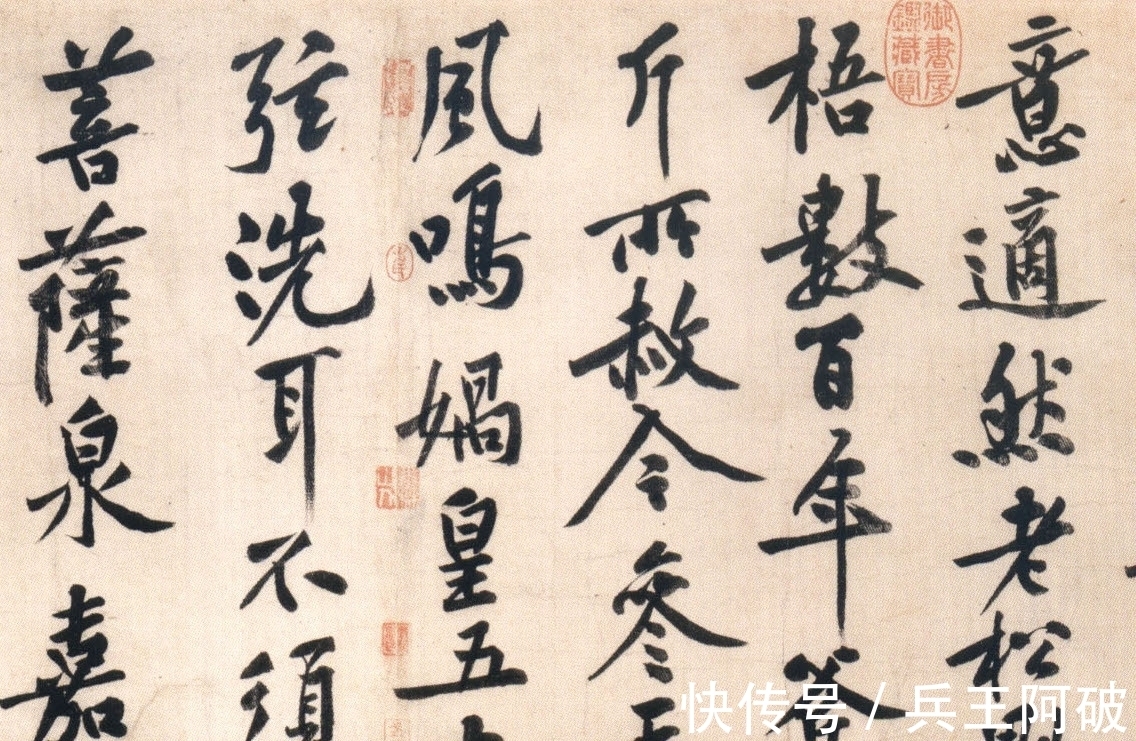 意適然老松
梧數百年
斤所赦今參
風鳴媧皇五
弦洗耳不須
菩薩泉嘉
御書房鑑藏寶
快传号 / 兵王阿破